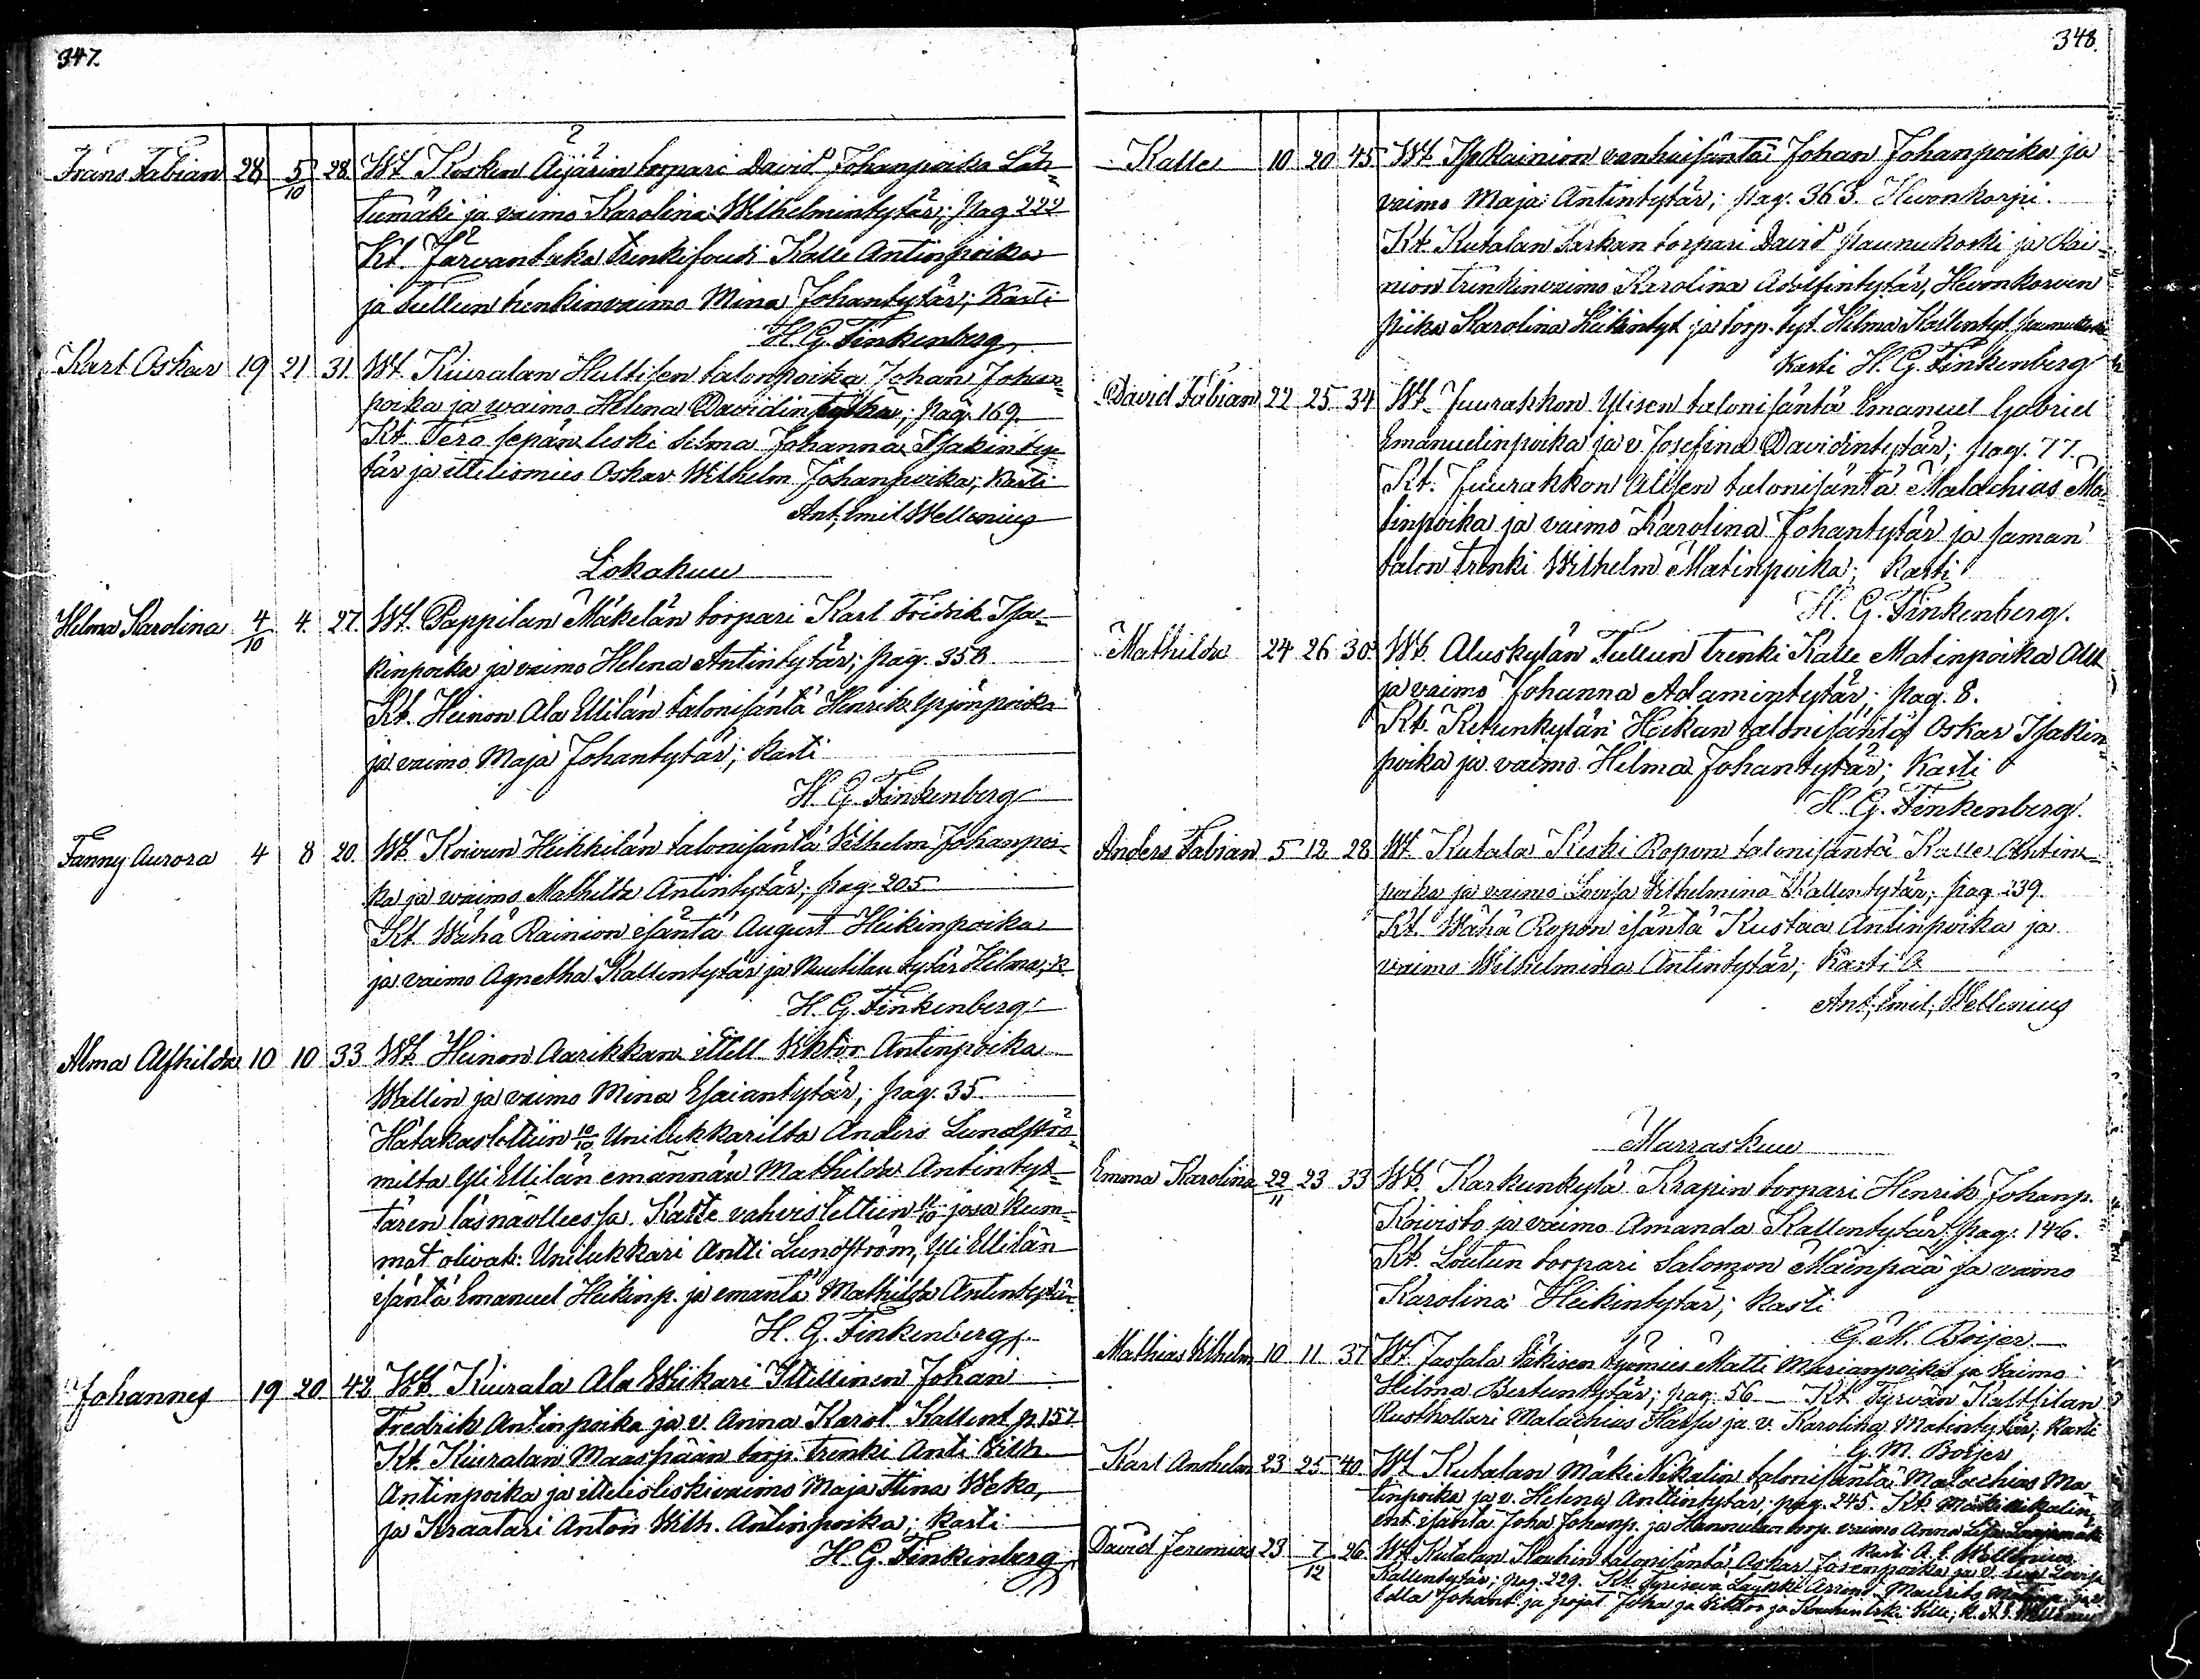 347.
Frans Fabian 28 5/10 28 Wt. Kosken Äijärin torpari David Johanpoika Läh-
tumäki ja vaimo Karolina Wilhelmintytär; pag 222
Kt. Järvantaka trenkifoudi Kalle Antinpoika
ja Tullun henkinvaimo Mina Johantytär; Kasti
H. G. Finkenberg
Karl Oskar 19 21 31. Wt. Kiuralan Hultisen talonpoika Johan Johan-
poika ja waimo Helena Davidin; pag. 169.
Kt. Tero sepän leski Selma Johanna Isakinty-
tär ja ittelismies Oskar Wilhelm Johanpoika; Kasti
Ant. Emil Wellenius
Lokakuu
Helma Karolina 4/10 4. 27. Wt. Pappilan Mäkelän torpari Karl Fridrik Isa-
kinpoika ja vaimo Helena Antintytär; pag. 358
Kt. Heinon Ala Ellilän talonisäntä Henrik Yrjönpoika
ja vaimo Maja Johantytär; Kasti
H. G. Finkenberg
Fanny Aurora 4 8 20. Wt. Koivun Heikkilän talonisäntä Wilhelm Johanpoi-
ka ja waimo Mathilda Antintytär; pag. 205
Kt. Wähä Rainion isäntä August Heikinpoika
ja vaimo Agnetha Kallentytär ja Nuutilan tytär Hilma; K
H. G. Finkenberg
Alma Alfhilda 10 10 33 Wt. Heinon Aarikkan ittell. Viktor Antinpoika
Wallin ja vaimo Mina Esaiantytär; pag. 35.
Hätäkastettiin 10/10 Unilukkarilta Anders Lundströ-
milta Yli Ellilän emännän Mathilda Antintyt-
tären läsnäollessa. Kaste vahvistettiin /10 jossa kum-
mat olivat: Unilukkari Antti Lundström, Yli Ellilän
isäntä Emanuel Heikinp. ja emäntä Mathilda Antintytär
H. G. Finkenberg
Johannes 19 20 42 Wt. Kiurala Ala Wiikari Ittellinen Johan
Fredrik Antinpoika ja v. Anna Karol. Kallent. p. 157
Kt. Kiuralan Maaspään torp. trenki Anti Wilh.
Antinpoika ja ittelisleskivaimo Maja Stina Weka,
ja Kraatari Anton Wilh. Antinpoika; Kasti
H. G. Finkenberg
348.
Kalle 10 20 45 Wt. Iso Rainion vanhaisäntä Johan Johanpoika ja
vaimo Maja Antintytär; pag. 363. Hevonkorpi.
Kt. Kutalan Sarkan torpari David Paunukoski ja Rai-
nion trenkinvaimo Karolina Adolfintytär, Hevonkorven
piika Karolina Heikintyt. ja torp. tyt. Helma Kallentyt. Paunukoski
Kasti H. G. Finkenberg
David Fabian 22 25 34 Wt. Juurakkon Ylisen talonisäntä Emanuel Gabriel
Emanuelinpoika ja v. Josefina Davidintytär; pag. 77.
Kt. Juurakkon Alisen talonisäntä Malachias Ma-
tinpoika ja vaimo Karolina Johantytär ja saman
talon trenki Wilhelm Matinpoika; Kasti
H. G. Finkenberg.
Mathilda 24 26 30 Wt. Aluskylän Tullun trenki Kalle Matinpoika
ja vaimo Johanna Adamintytär; pag. 8.
Kt. Ketunkylän Heikan talonisäntä Oskar Isakin-
poika ja vaimo Hilma Johantytär; Kasti
H. G. Finkenberg.
Anders Fabian 5 12 28 Wt. Kutala Keski Ropon talonisäntä Kalle Antin-
poika ja vaimo Lovisa Wilhelmina Kallentytär; pag. 239.
Kt. Wähä Ropon isäntä Kustaa Antinpoika ja
vaimo Wilhelmina Antintytär; Kasti
Ant. Emil. Wellenius
Marraskuu
Emma Karolina 22/11 23 33 Wt. Karkunkylä Krapin torpari Henrik Johanp.
Koivisto ja vaimo Amanda Kallentytär; pag. 146.
Kt. Loutun torpari Salomon Mäinpää ja vaimo
Karolina Heikintytär; Kasti
G. M. Boijer
Mathias Wilhelm 10 11 37 Wt. Jassala Säkisen työmies Matti Marianpoika ja vaimo
Hilma Bertuntytär; pag. 56 Kt. Tyrvän Kaltsilan
Rusthollari Malachias Hassu ja v. Karolina Matintytär; Kasti
G. M. Boijer
Karl Anshelm 23 25 40 Wt. Kutalan Mäki Nikalin talonisäntä Malachias Ma-
tinpoika ja v. Helena Anttintytär; pag. 245. Kt. Mäki Nikalin
ent. isäntä Joha Johanp. ja Hannulan torp. vaimo Anna Lisa
Kasti A. E. Wellenius
David Jeremias 23 7/12 26 Wt. Kutalan Kouhin talonisäntä Oskar ja v. Eva Lovisa
Kallentytär; pag. 229. Kt.
Edla Johant. ja pojat Joha ja Viktor ja